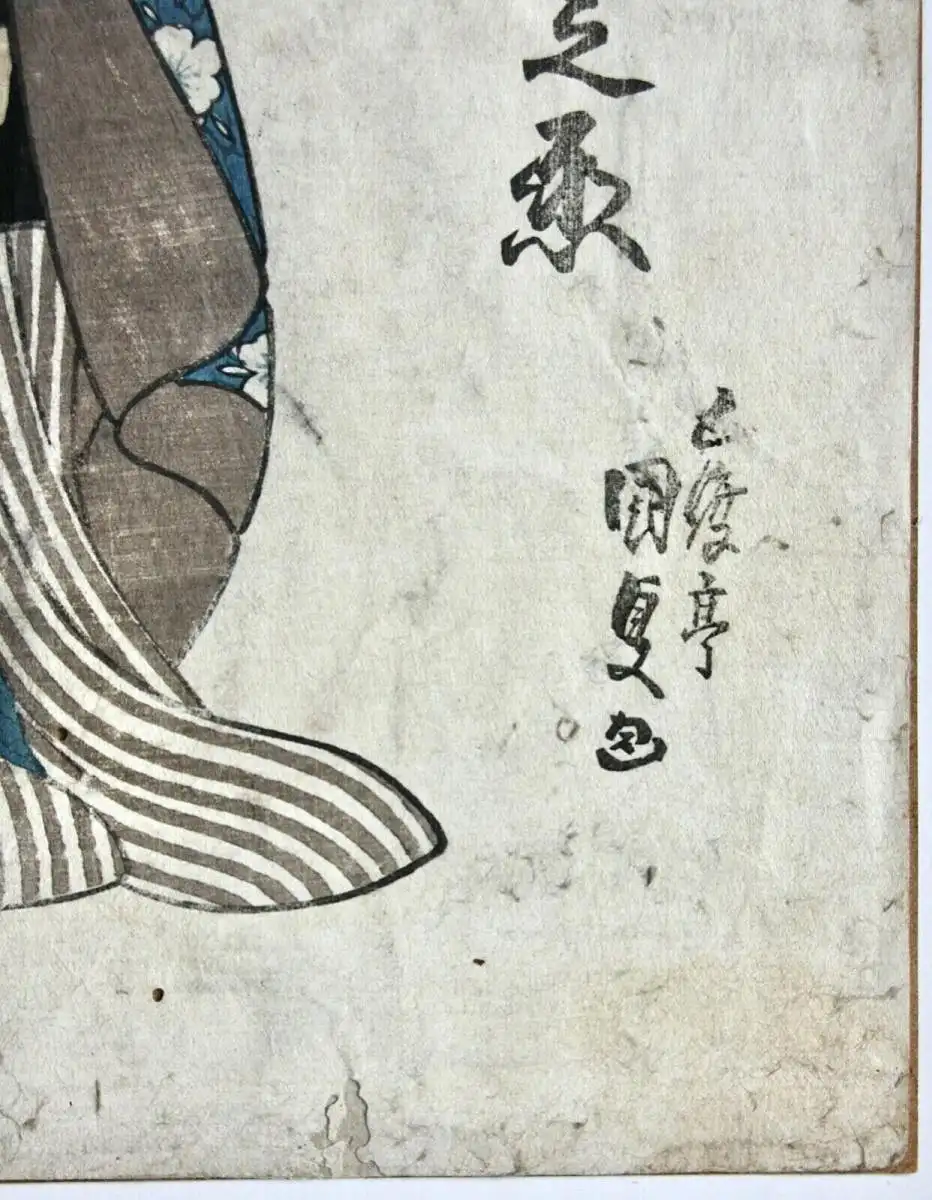 之丞
五渡亭
國貞画